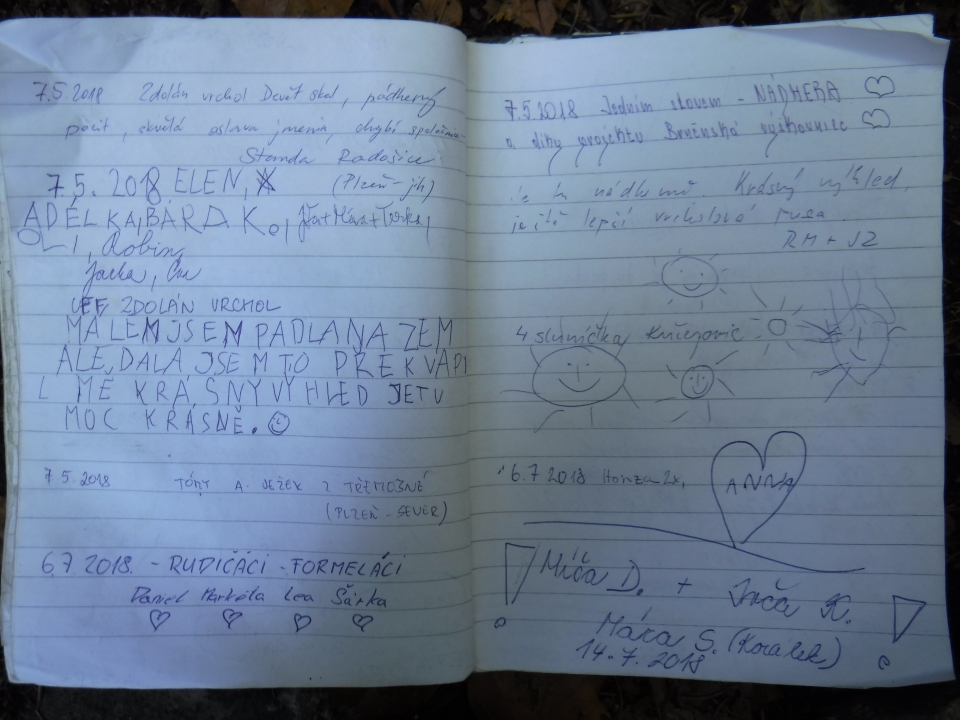 7.5.2018 Zdolán vrchol Devět skal, nádherný
pocit, skvělá oslava jmenin, chybí
Standa Radošice
(Plzeň-jih)
7.5.2018 ELEN,
ADÉLKA, BÁRA
OLI, Robin,
ZDOLÁN VRCHOL
MÁLEM JSEM PADLA NA ZEM
ALE, DALA JSEM TO PŘEKVAPI
L MĚ KRÁSNÝ VÝHLED JE TU
MOC KRÁSNĚ.
7.5.2018 A. JEŽEK Z TŘEMOŠNÉ
(PLZEŇ-SEVER)
6.7 2018. - RUDIČÁCI - FORMELÁCI
Daniel Markéta Lea Šárka
7.5.2018 Jedním slovem - NÁDHERA
a díky projektu Brněnská
je to nádherné. Krásný výhled,
je ště lepší vrcholová
RM + JZ
4 sluníčka
6.7 2018 Honza 2x,
ANNA
Míča D. + K.
Mára S.
14.7.2018